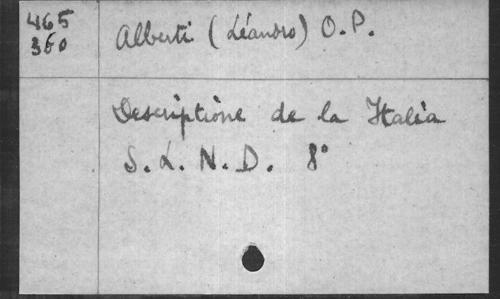 465
360
Alberti (Léandro) O.P.
Descriptione de la Italia
S.L.N.D. 8°